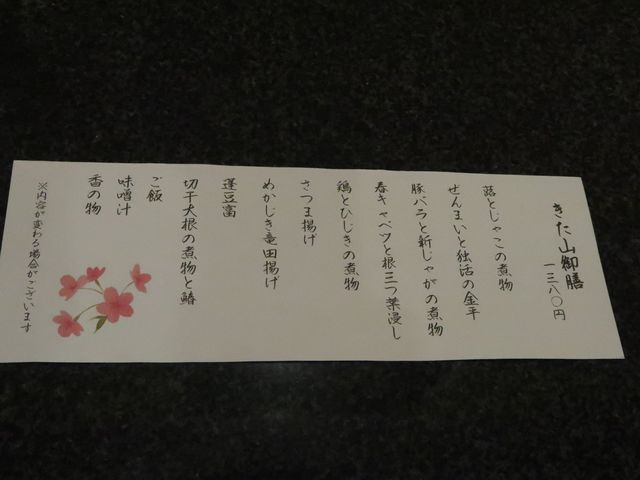 きた山御膳
一三八〇円
蕗とじゃこの煮物
ぜんまいと独活の金平
豚バラと新じゃがの煮物
春キャベツと根三つ葉浸し
鶏とひじきの煮物
さつま揚げ
めかじき竜田揚げ
蓬豆富
切干大根の煮物と鰆
ご飯
味噌汁
香の物
※内容が変わる場合がございます